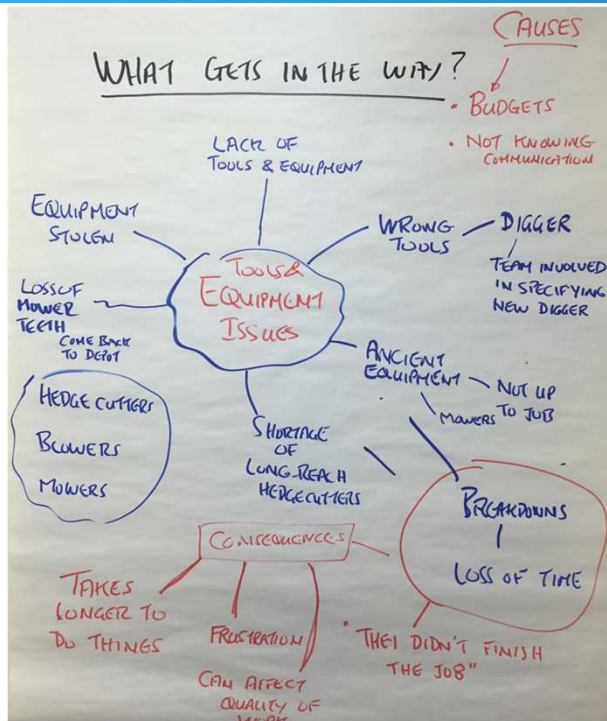 CAUSES
WHAT GETS IN THE WAY?
• BUDGETS
• NOT KNOWING
COMMUNICATION
LACK OF
TOOLS & EQUIPMENT
EQUIPMENT
STOLEN
WRONG
TOOLS
DIGGER
TEAM INVOLVED
IN SPECIFYING
NEW DIGGER
TOOLS &
EQUIPMENT
ISSUES
LOSS OF
MOWER
TEETH
COME BACK
TO DEPOT
ANCIENT
EQUIPMENT
NOT UP
TO JOB
MOWERS
HEDGE CUTTERS
BLOWERS
MOWERS
SHORTAGE
OF
LONG-REACH
HEDGECUTTERS
BREAKDOWNS
LOSS OF TIME
CONSEQUENCES
TAKES
LONGER TO
DO THINGS
FRUSTRATION
CAN AFFECT
QUALITY OF
WORK
"THEY DIDN'T FINISH
THE JOB"